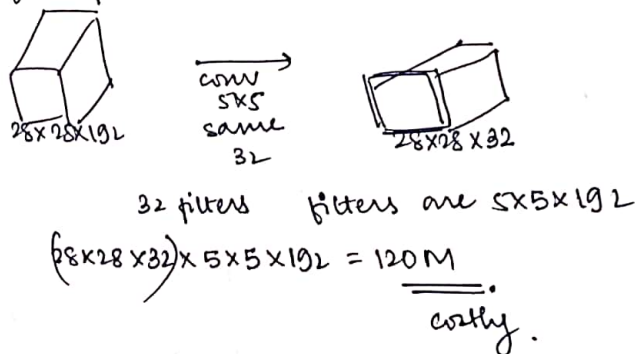 28×28×192
conv
5×5
same
32
28×28×32
32 filters filters are 5×5×192
(28×28×32)×5×5×192 = 120M
costly.